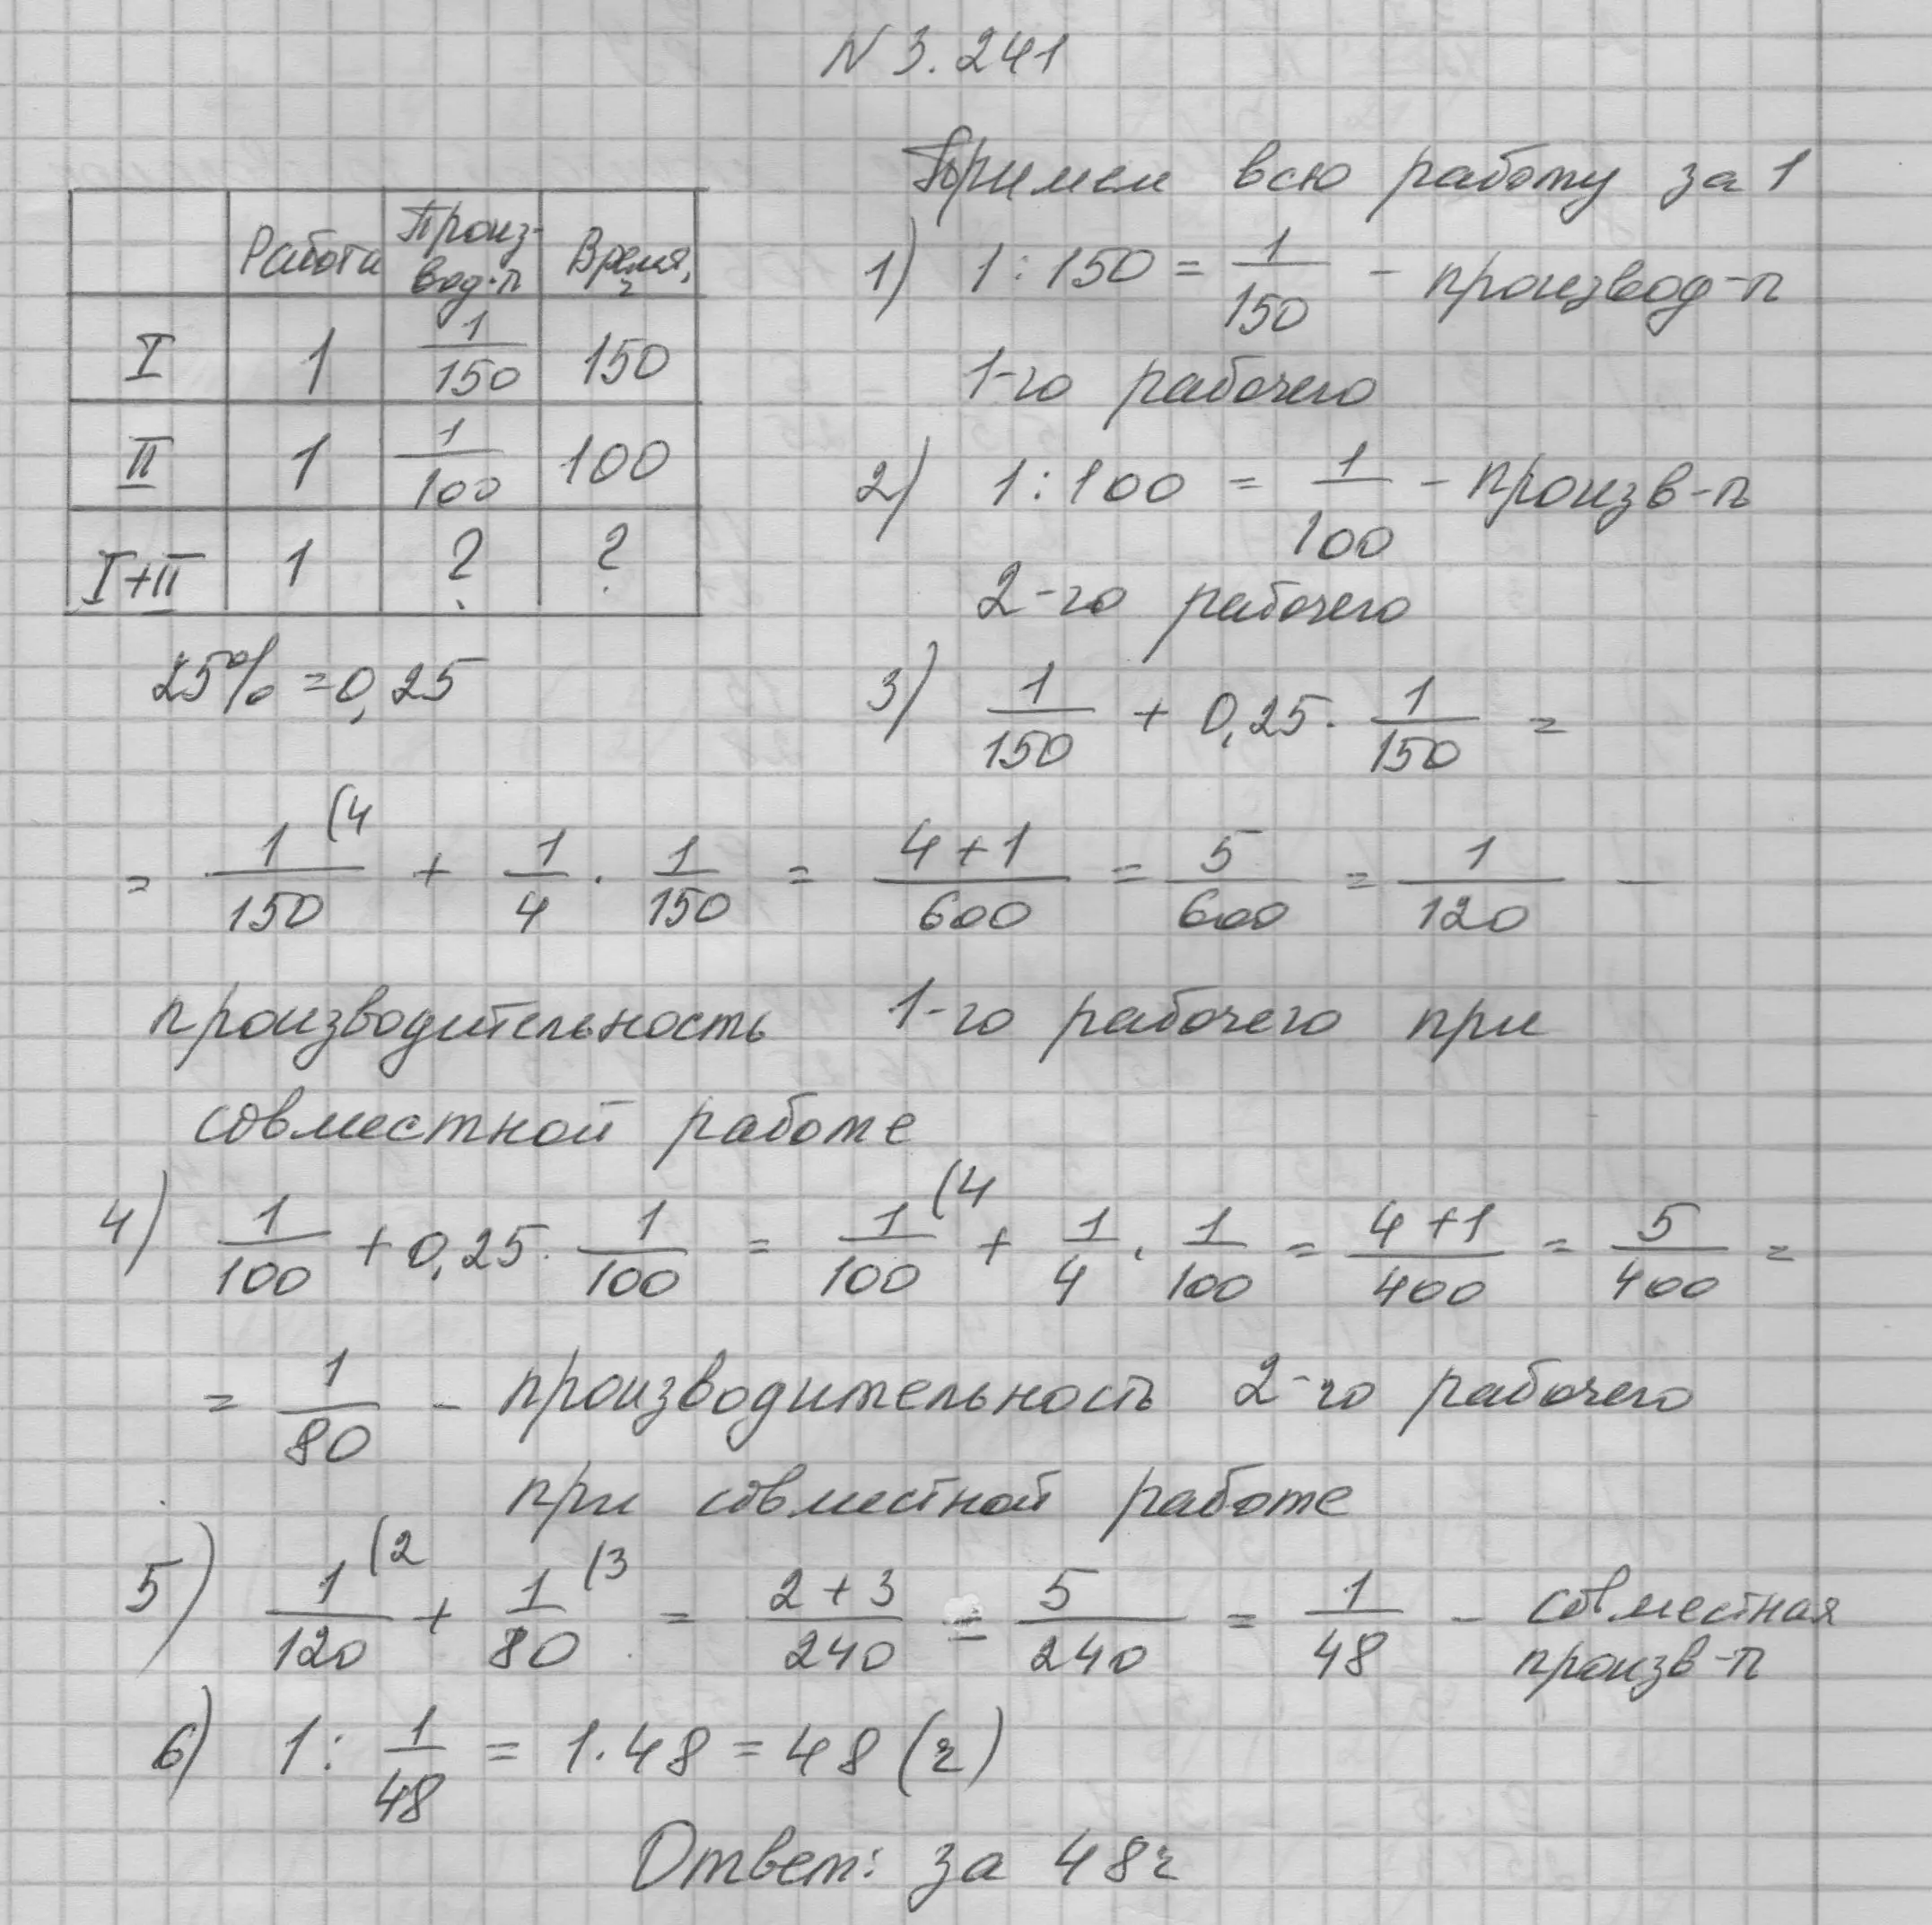 N 3.241
Примем всю работу за 1
Работа Произ- Время,
вод-п ч
I 1 1/150 150
II 1 1/100 100
I+II 1 ? ?
25% = 0,25
1) 1 : 150 = 1/150 - производ-п
1-го рабочего
2) 1 : 100 = 1/100 - произв-п
2-го рабочего
3) 1/150 + 0,25 · 1/150 =
= 1/150 (4 + 1/4 · 1/150 = 4+1/600 = 5/600 = 1/120 —
производительность 1-го рабочего при
совместной работе
4) 1/100 + 0,25 · 1/100 = 1/100 (4 + 1/4 · 1/100 = 4+1/400 = 5/400 =
= 1/80 - производительность 2-го рабочего
при совместной работе
5) 1/120 (2 + 1/80 (3 = 2+3/240 = 5/240 = 1/48 - совместная
произв-п
6) 1 : 1/48 = 1 · 48 = 48 (ч)
Ответ: за 48ч